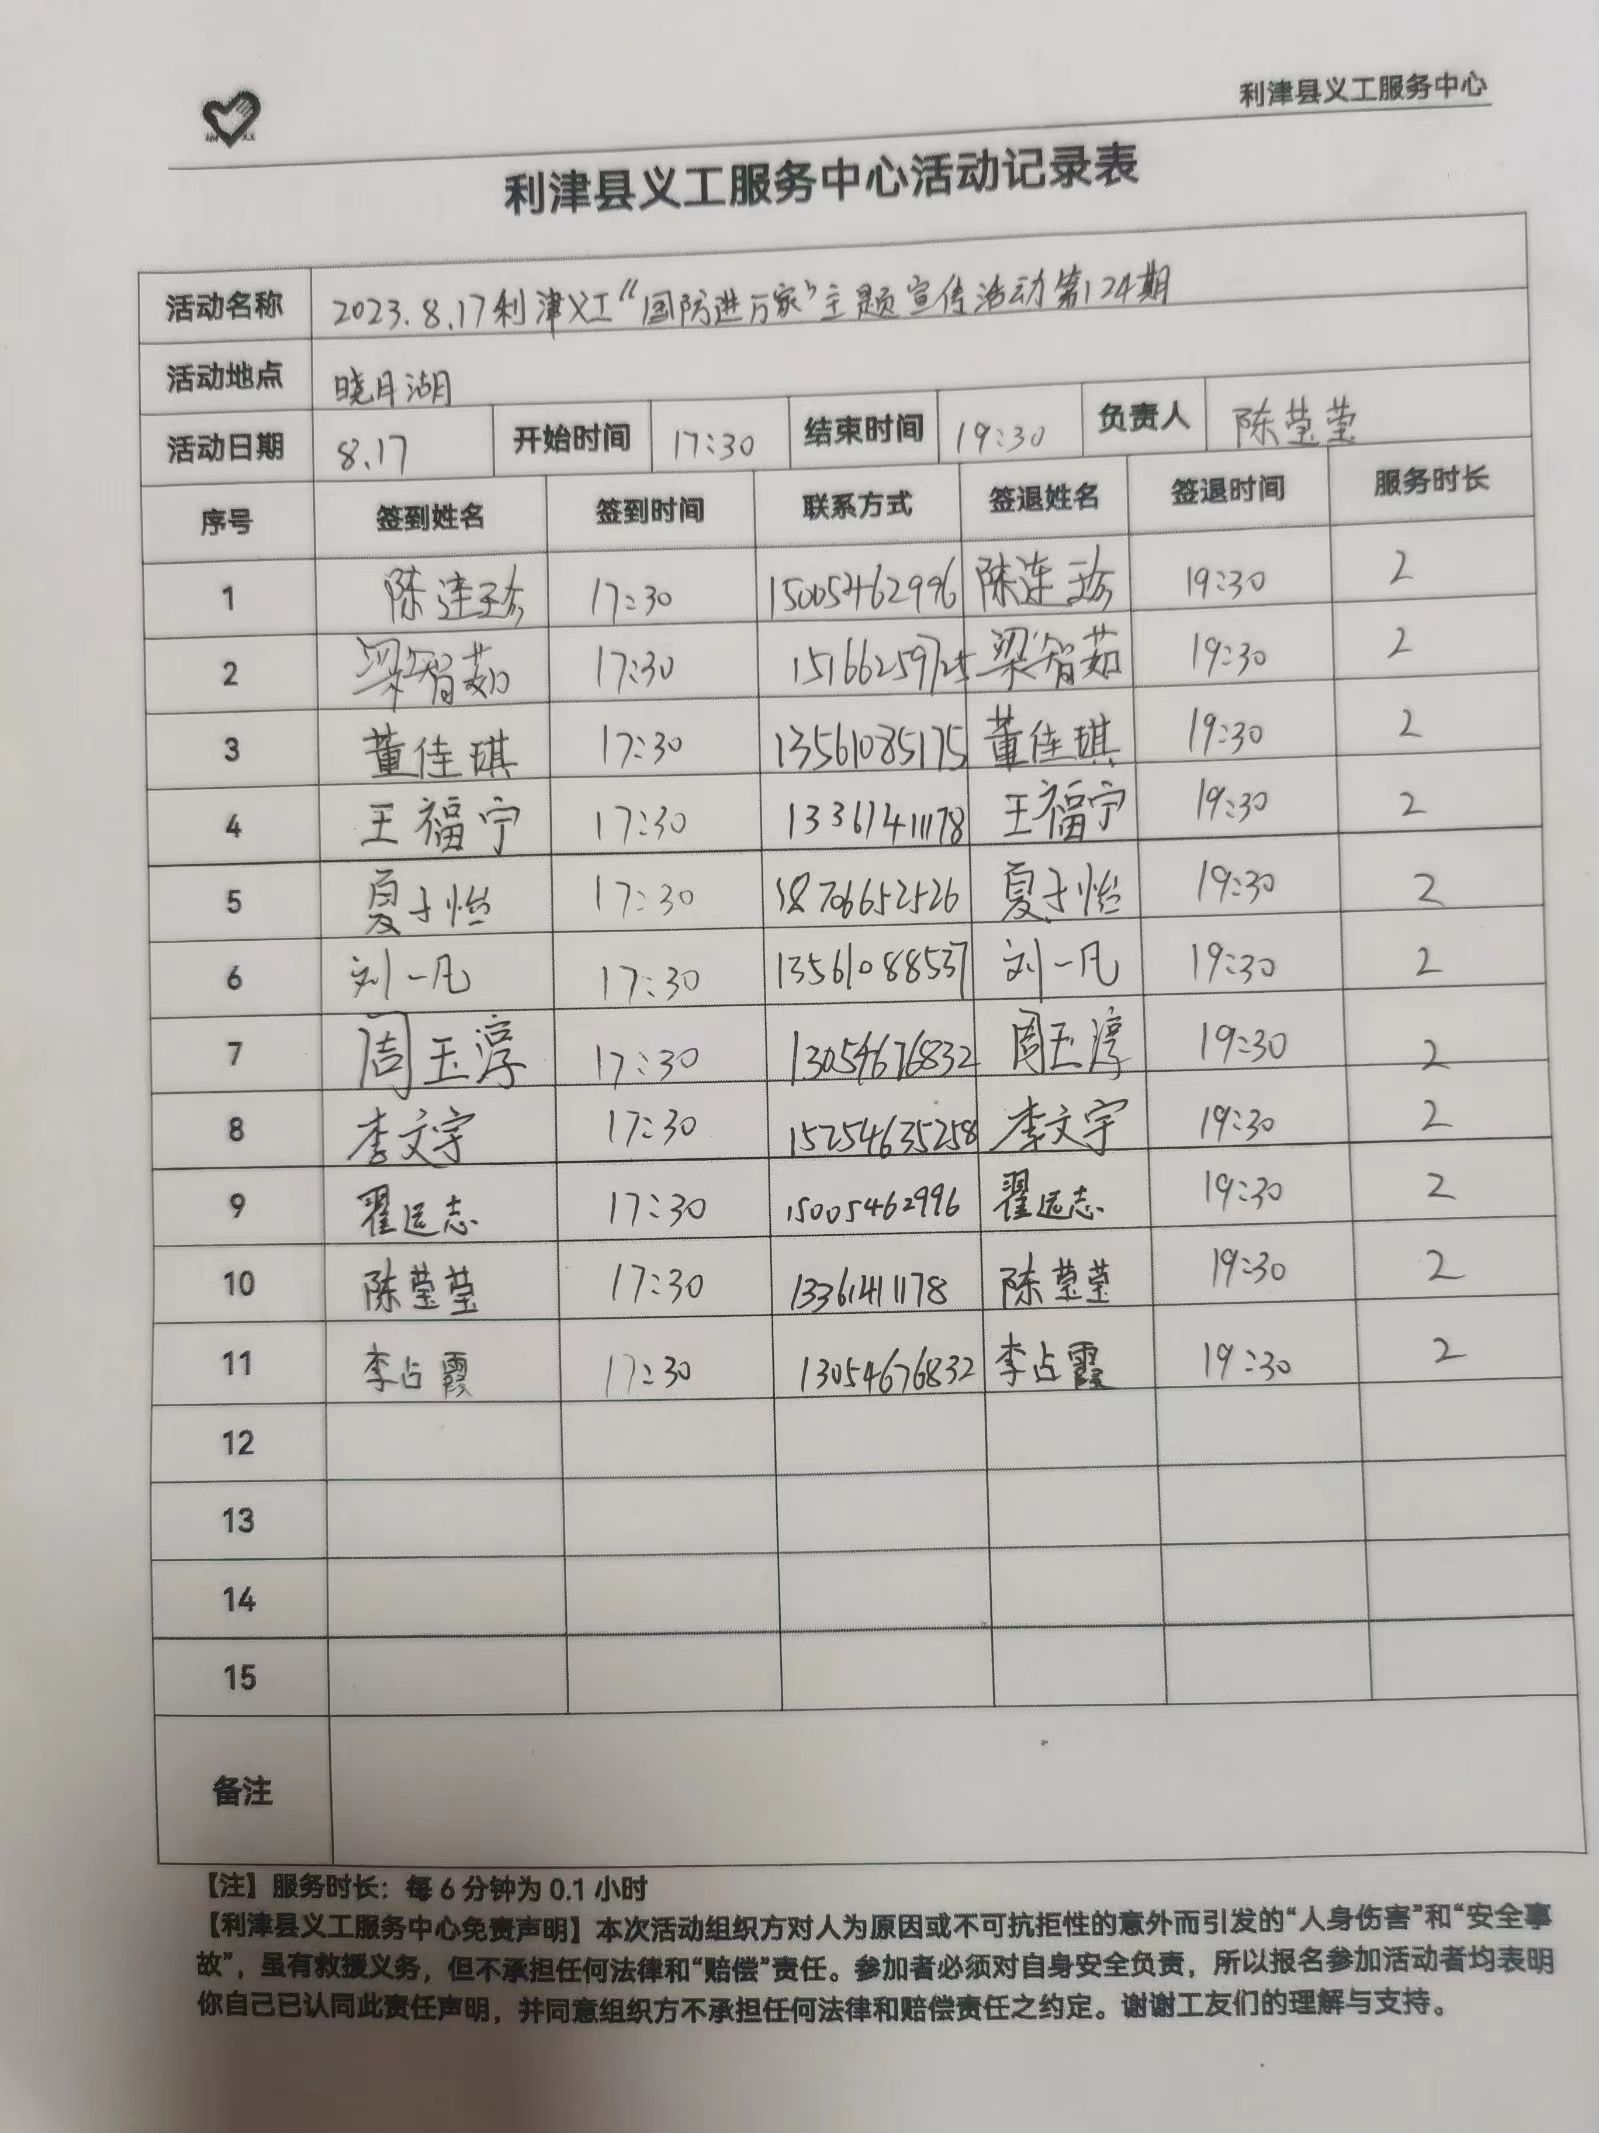 利津县义工服务中心
利津县义工服务中心活动记录表
活动名称 2023.8.17利津义工“国防进万家”主题宣传活动第124期
活动地点 晓月湖
活动日期 8.17 开始时间 17:30 结束时间 19:30 负责人 陈莹莹
序号 签到姓名 签到时间 联系方式 签退姓名 签退时间 服务时长
1 陈连珍 17:30 15005462996 陈连珍 19:30 2
2 梁智茹 17:30 15166259725 梁智茹 19:30 2
3 董佳琪 17:30 13561085175 董佳琪 19:30 2
4 王福宁 17:30 13361411178 王福宁 19:30 2
5 夏子怡 17:30 18706652526 夏子怡 19:30 2
6 刘一凡 17:30 13561088537 刘一凡 19:30 2
7 周玉淳 17:30 13054676832 周玉淳 19:30 2
8 李文宇 17:30 15254635258 李文宇 19:30 2
9 翟远志 17:30 15005462996 翟远志 19:30 2
10 陈莹莹 17:30 13361411178 陈莹莹 19:30 2
11 李占霞 17:30 13054676832 李占霞 19:30 2
12
13
14
15
备注
【注】服务时长：每 6 分钟为 0.1 小时
【利津县义工服务中心免责声明】本次活动组织方对人为原因或不可抗拒性的意外而引发的“人身伤害”和“安全事
故”，虽有救援义务，但不承担任何法律和“赔偿”责任。参加者必须对自身安全负责，所以报名参加活动者均表明
你自己已认同此责任声明，并同意组织方不承担任何法律和赔偿责任之约定。谢谢工友们的理解与支持。